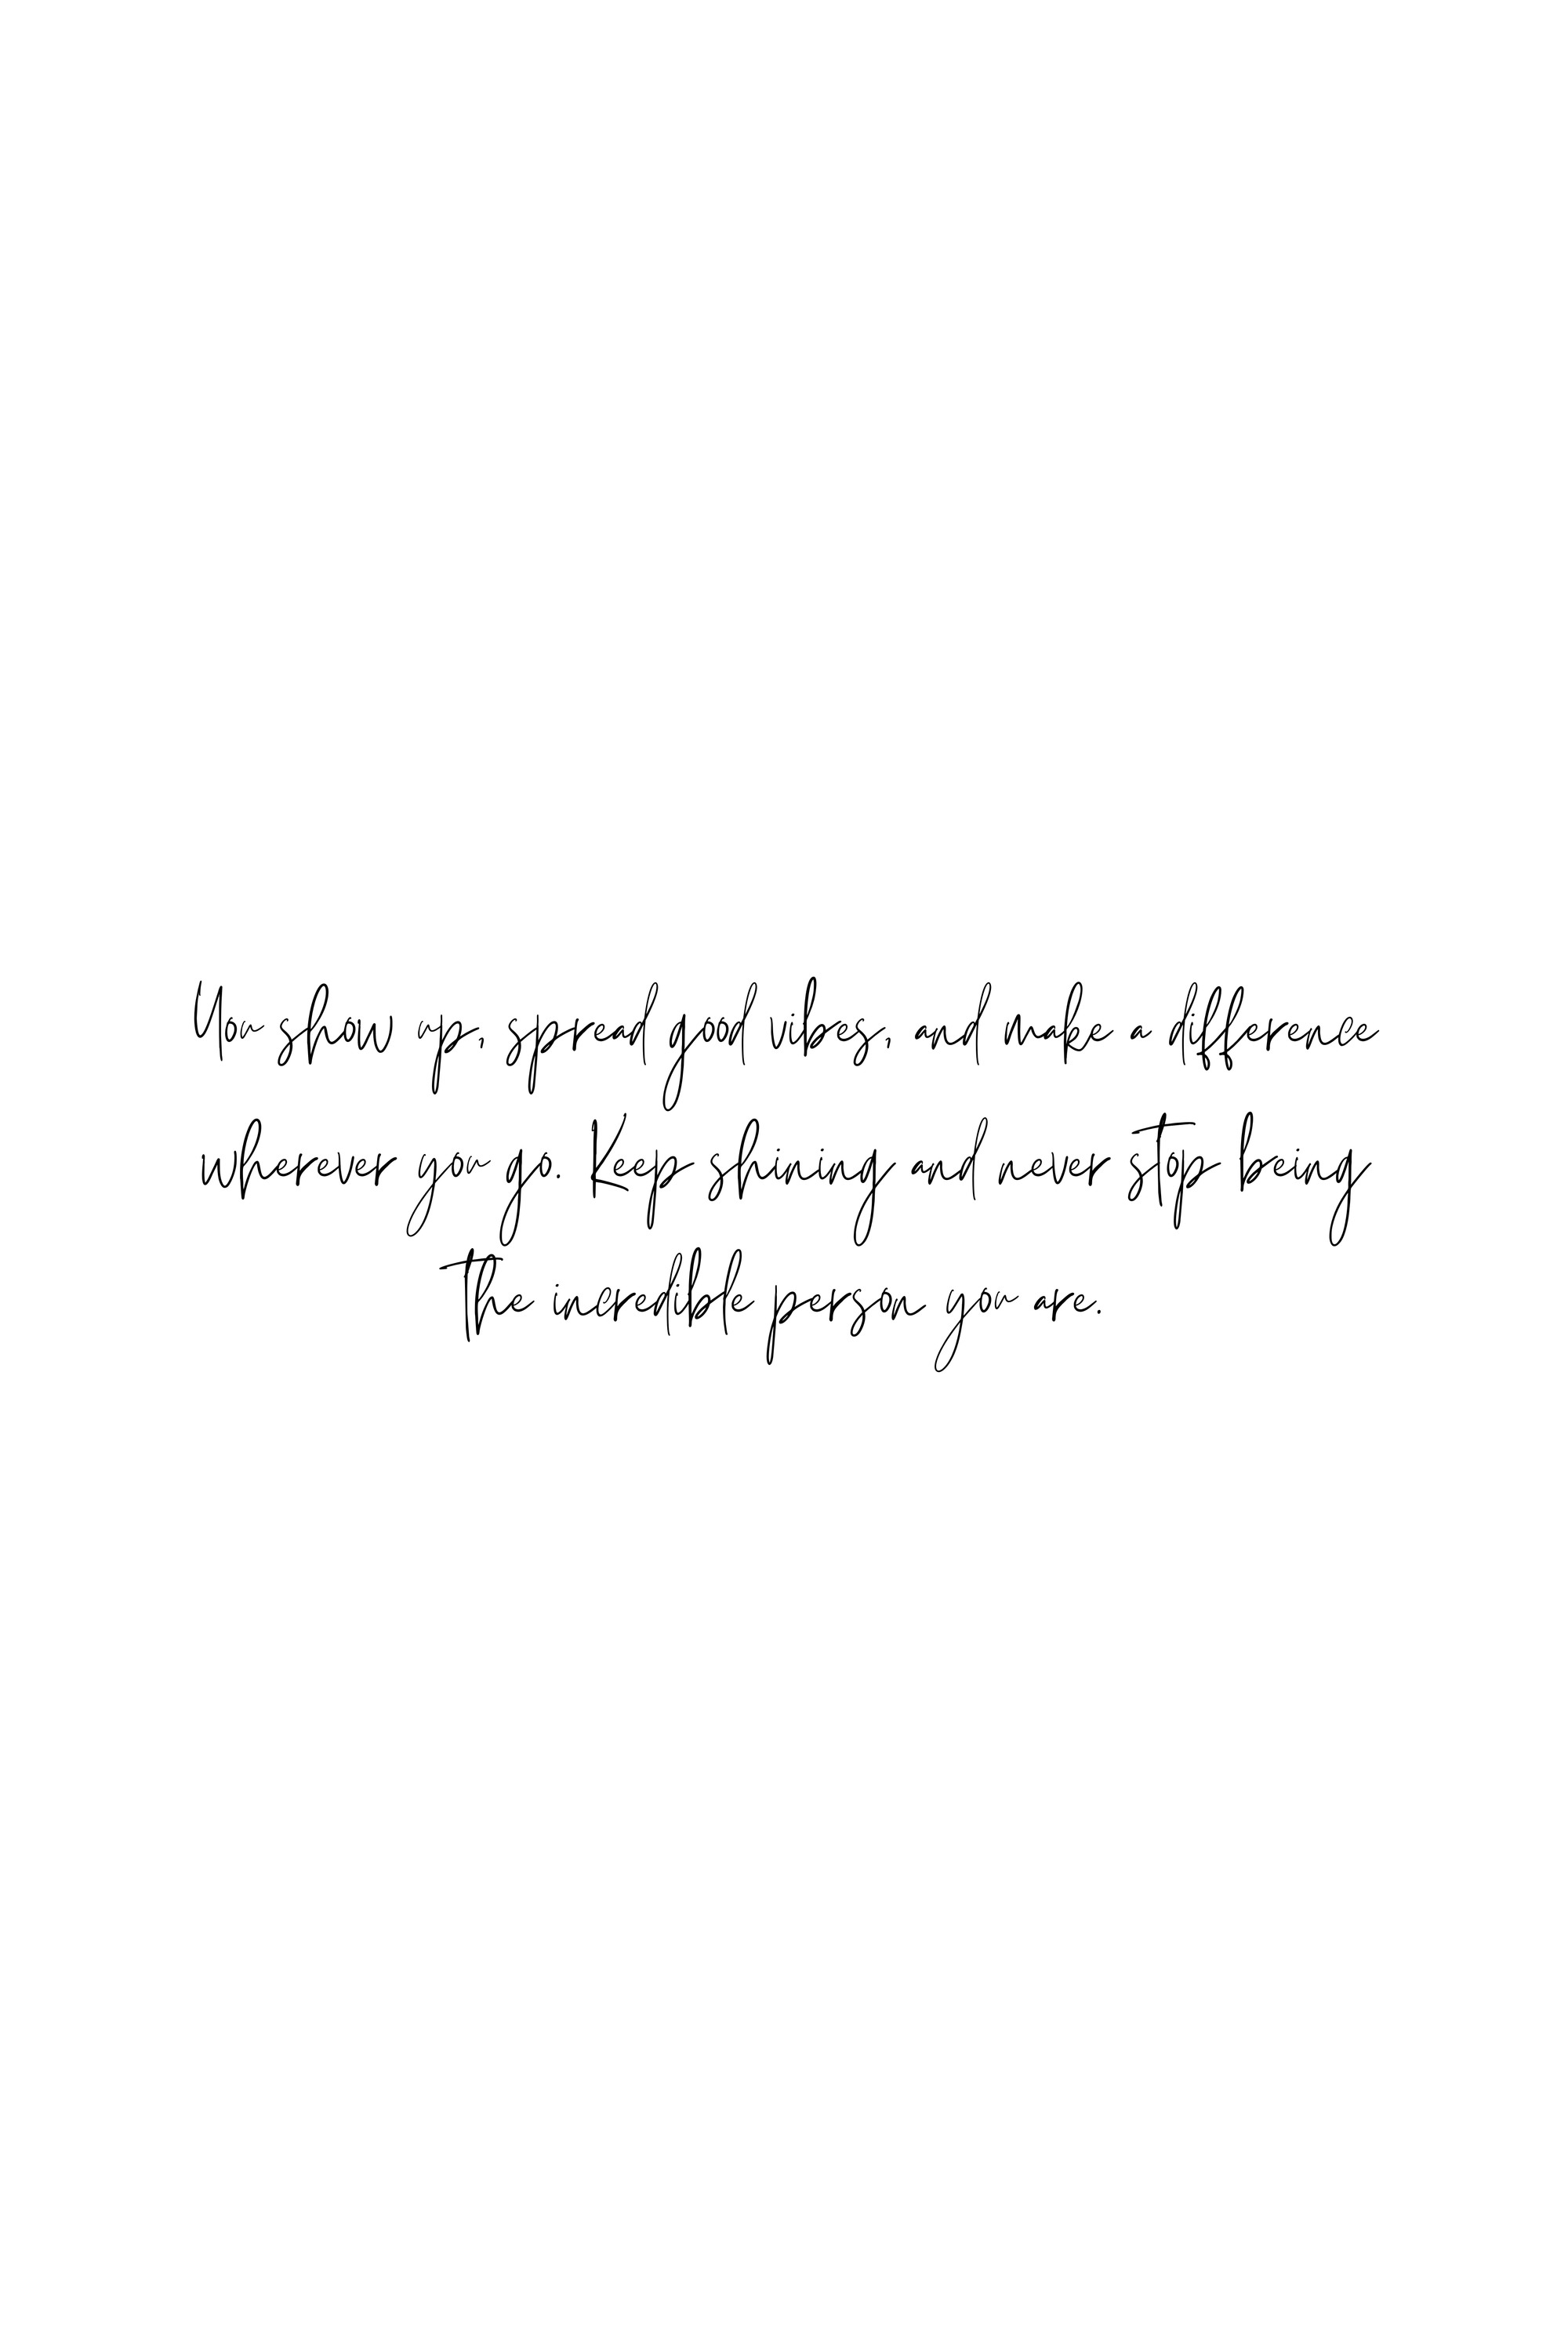 You show up, spread good vibes, and make a difference
wherever you go. Keep shining and never stop being
the incredible person you are.